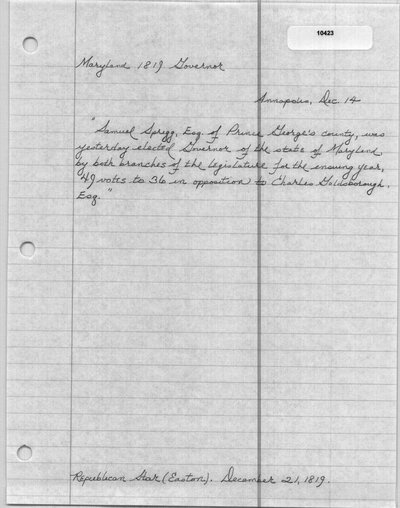 10423
Maryland 1819 Governor
Annapolis, Dec. 14
"Samuel Sprigg, Esq. of Prince George's county, was
yesterday elected Governor of the state of Maryland
by both branches of the legislature for the ensuing year,
49 votes to 36 in opposition to Charles Goldsborough,
Esq."
Republican Star (Easton). December 21, 1819.